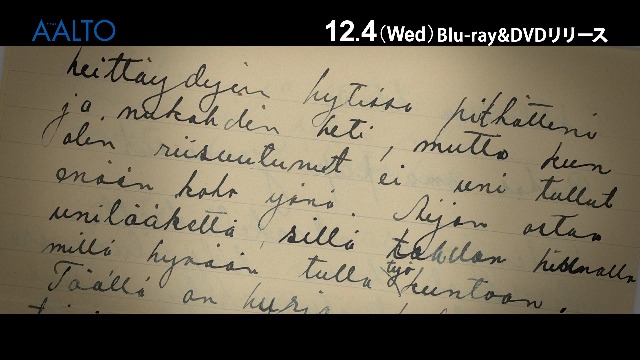 AALTO
12.4(Wed) Blu-ray&DVDリリース
heittäydyin hytissä pitkälleni
ja nukahdin heti, mutta kun
olen riisuutunut ei uni tullut
enään koko yönä. Aijon ostaa
unilääkettä, sillä tahdon
millä hyvään tulla työ kuntoon.
Täällä on